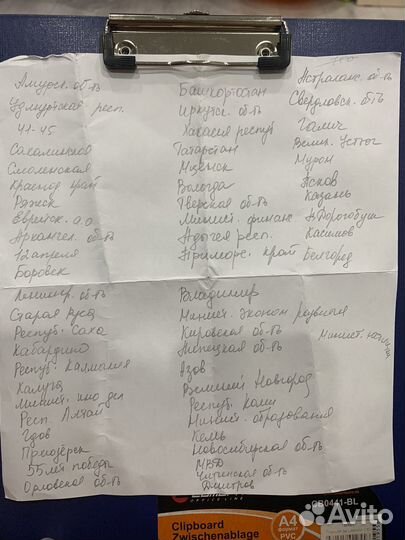 Амурск. об-ть
Удмуртская респ.
41-45
Сахалинская
Смоленская
Краснод край
Ряжск
Еврейск. а.о
Архангел. об-ть
12 апреля
Боровск
Ленингр. об-ть
Старая Руса
Респуб. Саха
Кабардино
Респуб. Калмыкия
Калуга
Минист. ино дел
Респ Алтай
Гдов
Приозёрск
55 лет победы
Орловская об-ть
Башкортостан
Иркутск. об-ть
Хакасия респуб
Татарстан
Мценск
Вологда
Тверская об-ть
Минист. финанс
Адыгея респ.
Приморс. край
Владимир
Минист. эконом развития
Кировская об-ть
Липецкая об-ть
Азов
Великий Новгород
Респуб. Коми
Минист. образования
Кемь
Новосибирская об-ть
МВД
Читинская об-ть
Дмитров
Астрахан. об-ть
Свердловск. об-ть
Галич
Велик. Устюг
Муром
Псков
Казань
Дорогобуж
Касимов
Белгород
Минист. юстиции
CB0441-BL
Clipboard
Zwischenablage
A4
формат
PVC
Avito